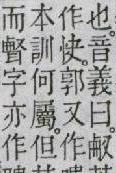 也。音義曰。
作快。郭又作
本訓何屬。但
而字亦作